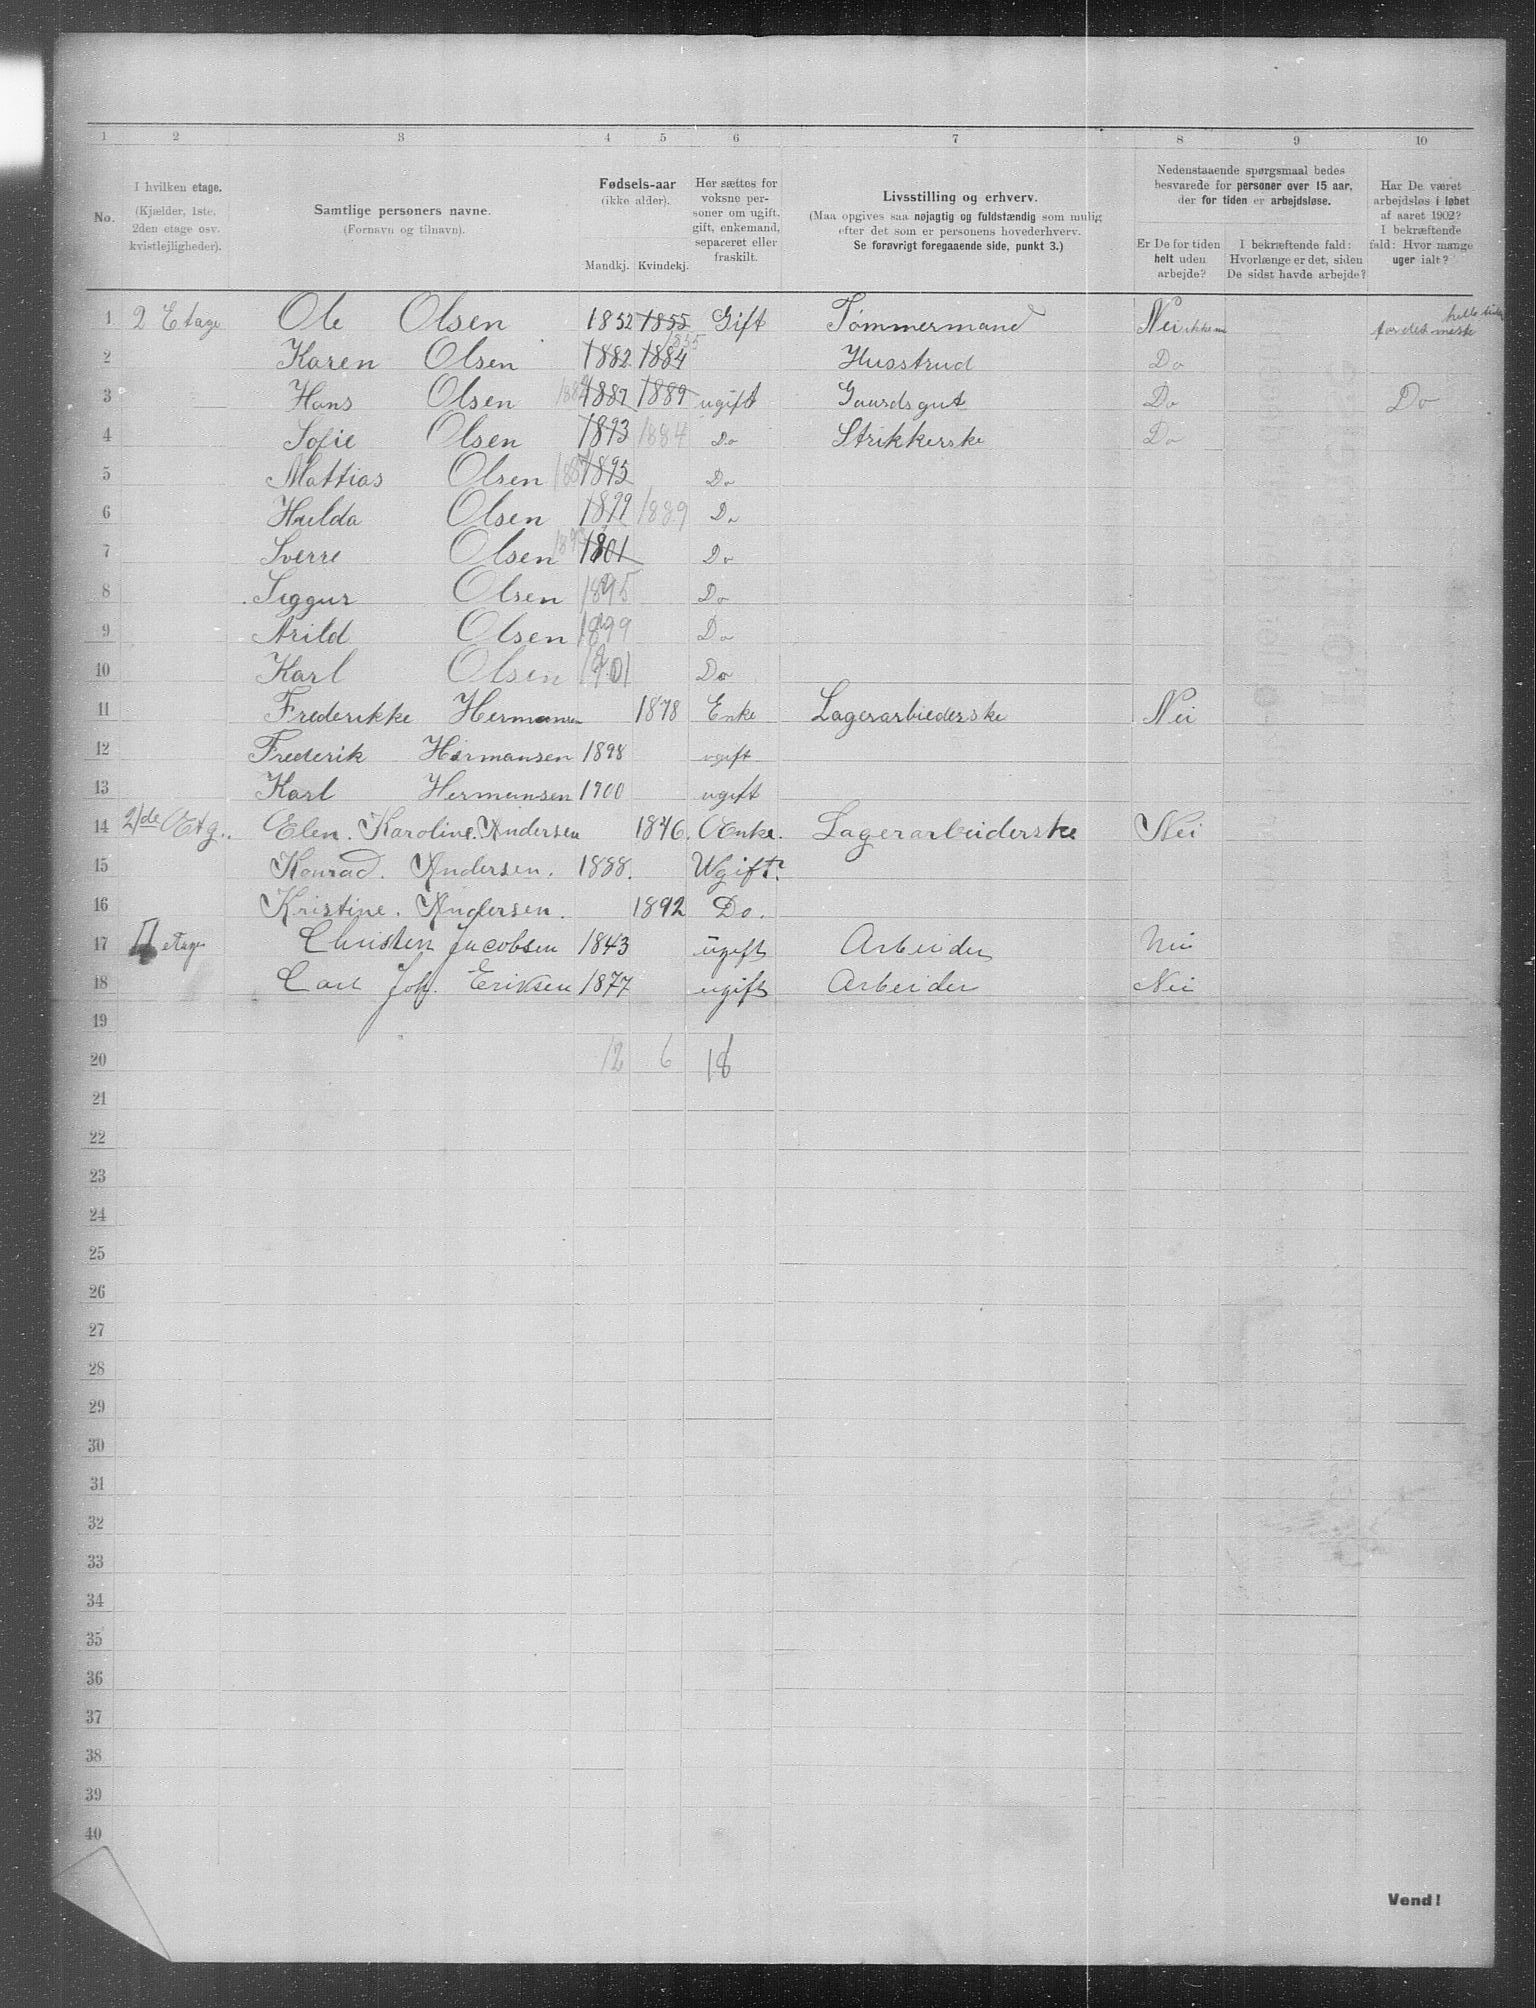 1 2 3 4 5 6 7 8 9 10
No.
I hvilken etage.
(Kjælder, 1ste, 2den etage osv. kvistlejligheder).
Samtlige personers navne.
(Fornavn og tilnavn).
Fødsels-aar
(ikke alder).
Mandkj. Kvindekj.
Her sættes for voksne personer om ugift, gift, enkemand, separeret eller fraskilt.
Livsstilling og erhverv.
(Maa opgives saa nøjagtig og fuldstændig som mulig
efter det som er personens hovederhverv.
Se forøvrigt foregaaende side, punkt 3.)
Nedenstaaende spørgsmaal bedes
besvarede for personer over 15 aar,
der for tiden er arbejdsløse.
Er De for tiden helt uden arbejde?
I bekræftende fald: Hvorlænge er det, siden De sidst havde arbejde?
Har De været arbejdsløs i løbet af aaret 1902? I bekræftende fald: Hvor mange uger ialt?
1 2 Etage Ole Olsen 1852 1855 Gift Tømmermand Nei for det meste
2 Karen Olsen 1882 1884 1855 Husstrud Do
3 Hans Olsen 1882 1887 1889 ugift Gaardsgut Do Do
4 Sofie Olsen 1893 1884 Do Strikkerske Do
5 Mattias Olsen 1887 1895 Do
6 Hulda Olsen 1899 1889 Do
7 Sverre Olsen 1893 1901 Do
8 Siggur Olsen 1895 Do
9 Arild Olsen 1899 Do
10 Karl Olsen 1901 Do
11 Frederikke Hermansen 1878 Enke Lagerarbiederske Nei
12 Frederik Hermansen 1898 ugift
13 Karl Hermansen 1900 ugift
14 2/de Etg. Elen. Karoline. Andersen 1846. Enke. Lagerarbeiderske Nei
15 Konrad. Andersen. 1888. Ugift.
16 Kristine. Andersen. 1892 Do.
17 4 etage Christen Jacobsen 1843 ugift Arbeider Nei
18 Carl Joh. Eriksen 1877 ugift Arbeider Nei
19
20 12 6 18
21
22
23
24
25
26
27
28
29
30
31
32
33
34
35
36
37
38
39
40
Vend!